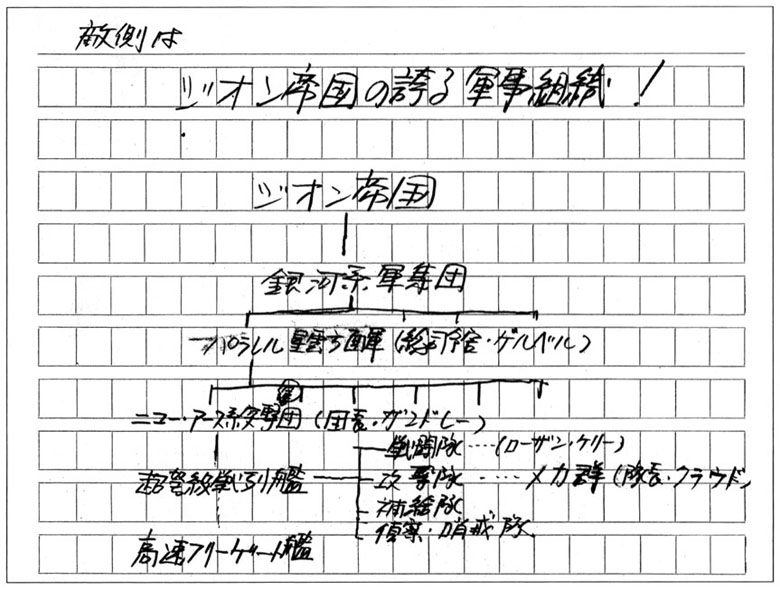 敵側は
ジオン帝国の誇る軍事組織!
ジオン帝国
銀河系軍集団
パラレル星雲方面軍(総司令官・ゲルベル)
ニュー・アース系攻撃集団(団長・ガンドレー)
戦闘隊……(ローザン・ケリー)
超弩級戦列艦 攻撃隊……メカ群(隊長・クラウド)
補給隊
偵察・哨戒隊
高速フリーゲート艦